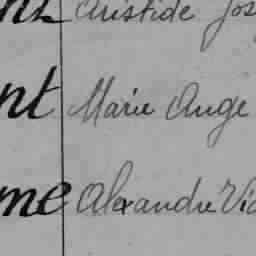 nt Aristide Jos
nt Marie Ange
me Alexandre Vic